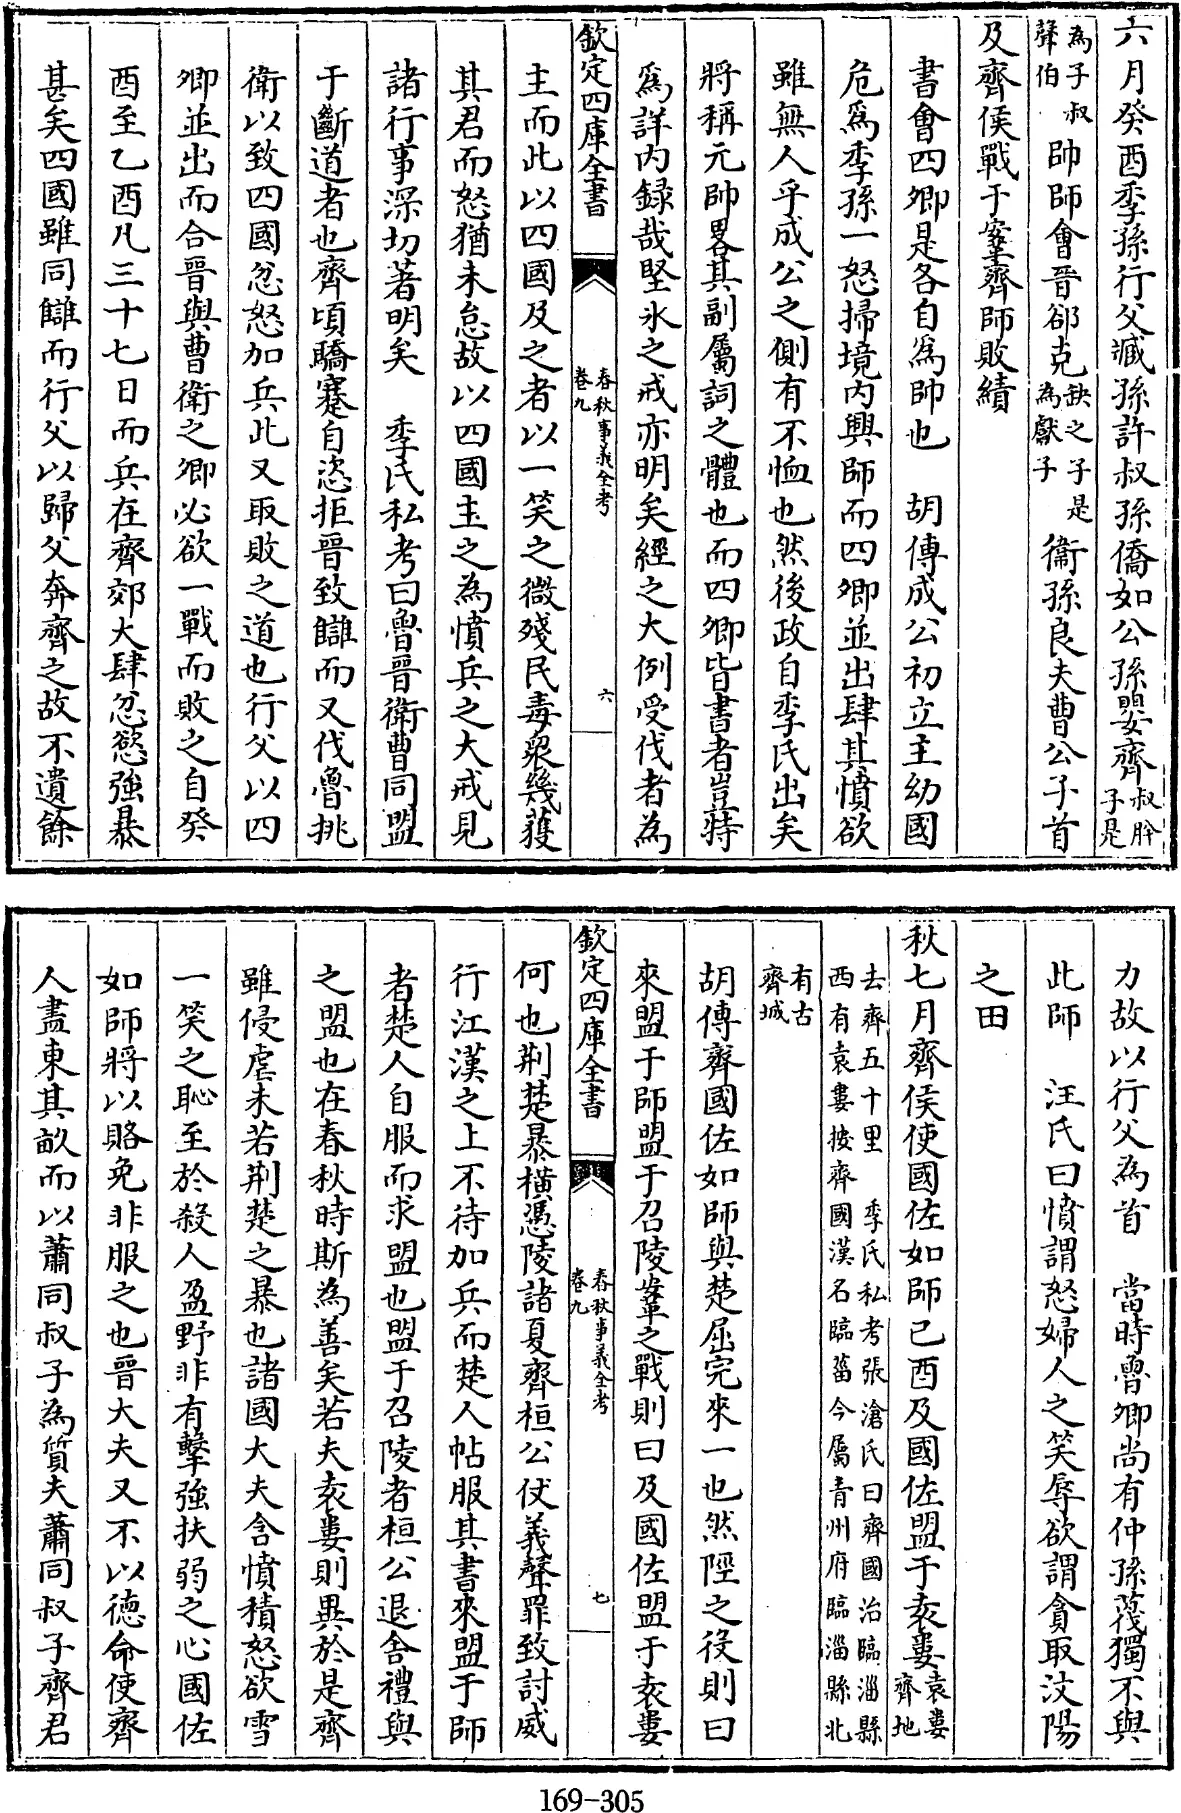 六月癸酉季孫行父臧孫許叔孫僑如公孫嬰齊叔肸子是
為子叔聲伯帥師會晉郤克缺之子是為獻子衞孫良夫曹公子首
及齊侯戰于鞌齊師敗績
書會四卿是各自為帥也　胡傳成公初立主幼國
危爲季孫一怒掃境內興師而四卿並出肆其憤欲
雖無人乎成公之側有不恤也然後政自季氏出矣
將稱元帥畧其副屬詞之體也而四卿皆書者豈特
爲詳內録哉堅氷之戒亦明矣經之大例受伐者為
欽定四庫全書　春秋事義全考卷九　六
主而此以四國及之者以一笑之微殘民毒衆幾獲
其君而怒猶未怠故以四國主之為憤兵之大戒見
諸行事深切著明矣　季氏私考曰魯晉衛曹同盟
于斷道者也齊頃驕蹇自恣拒晉致讎而又伐魯挑
衛以致四國忿怒加兵此又取敗之道也行父以四
卿並出而合晉與曹衛之卿必欲一戰而敗之自癸
酉至乙酉凡三十七日而兵在齊郊大肆忿慾強暴
甚矣四國雖同讎而行父以歸父奔齊之故不遺餘
力故以行父為首　當時魯卿尚有仲孫蔑獨不與
此師　汪氏曰憤謂怒婦人之笑辱欲謂貪取汶陽
之田
秋七月齊侯使國佐如師己酉及國佐盟于袁婁袁婁齊地
去齊五十里　季氏私考張滄氏曰齊國治臨淄縣西有袁婁按齊國漢名臨菑今屬青州府臨淄縣北
有古齊城
胡傳齊國佐如師與楚屈完來一也然陘之役則曰
來盟于師盟于召陵鞌之戰則曰及國佐盟于袁婁
欽定四庫全書　春秋事義全考卷九　七
何也荆楚暴橫憑陵諸夏齊桓公仗義聲罪致討威
行江漢之上不待加兵而楚人帖服其書來盟于師
者楚人自服而求盟也盟于召陵者桓公退舍禮與
之盟也在春秋時斯為善矣若夫袁婁則異於是齊
雖侵虐未若荆楚之暴也諸國大夫含憤積怒欲雪
一笑之恥至於殺人盈野非有擊強扶弱之心國佐
如師將以賂免非服之也晉大夫又不以德命使齊
人盡東其畝而以蕭同叔子為質夫蕭同叔子齊君
169-305